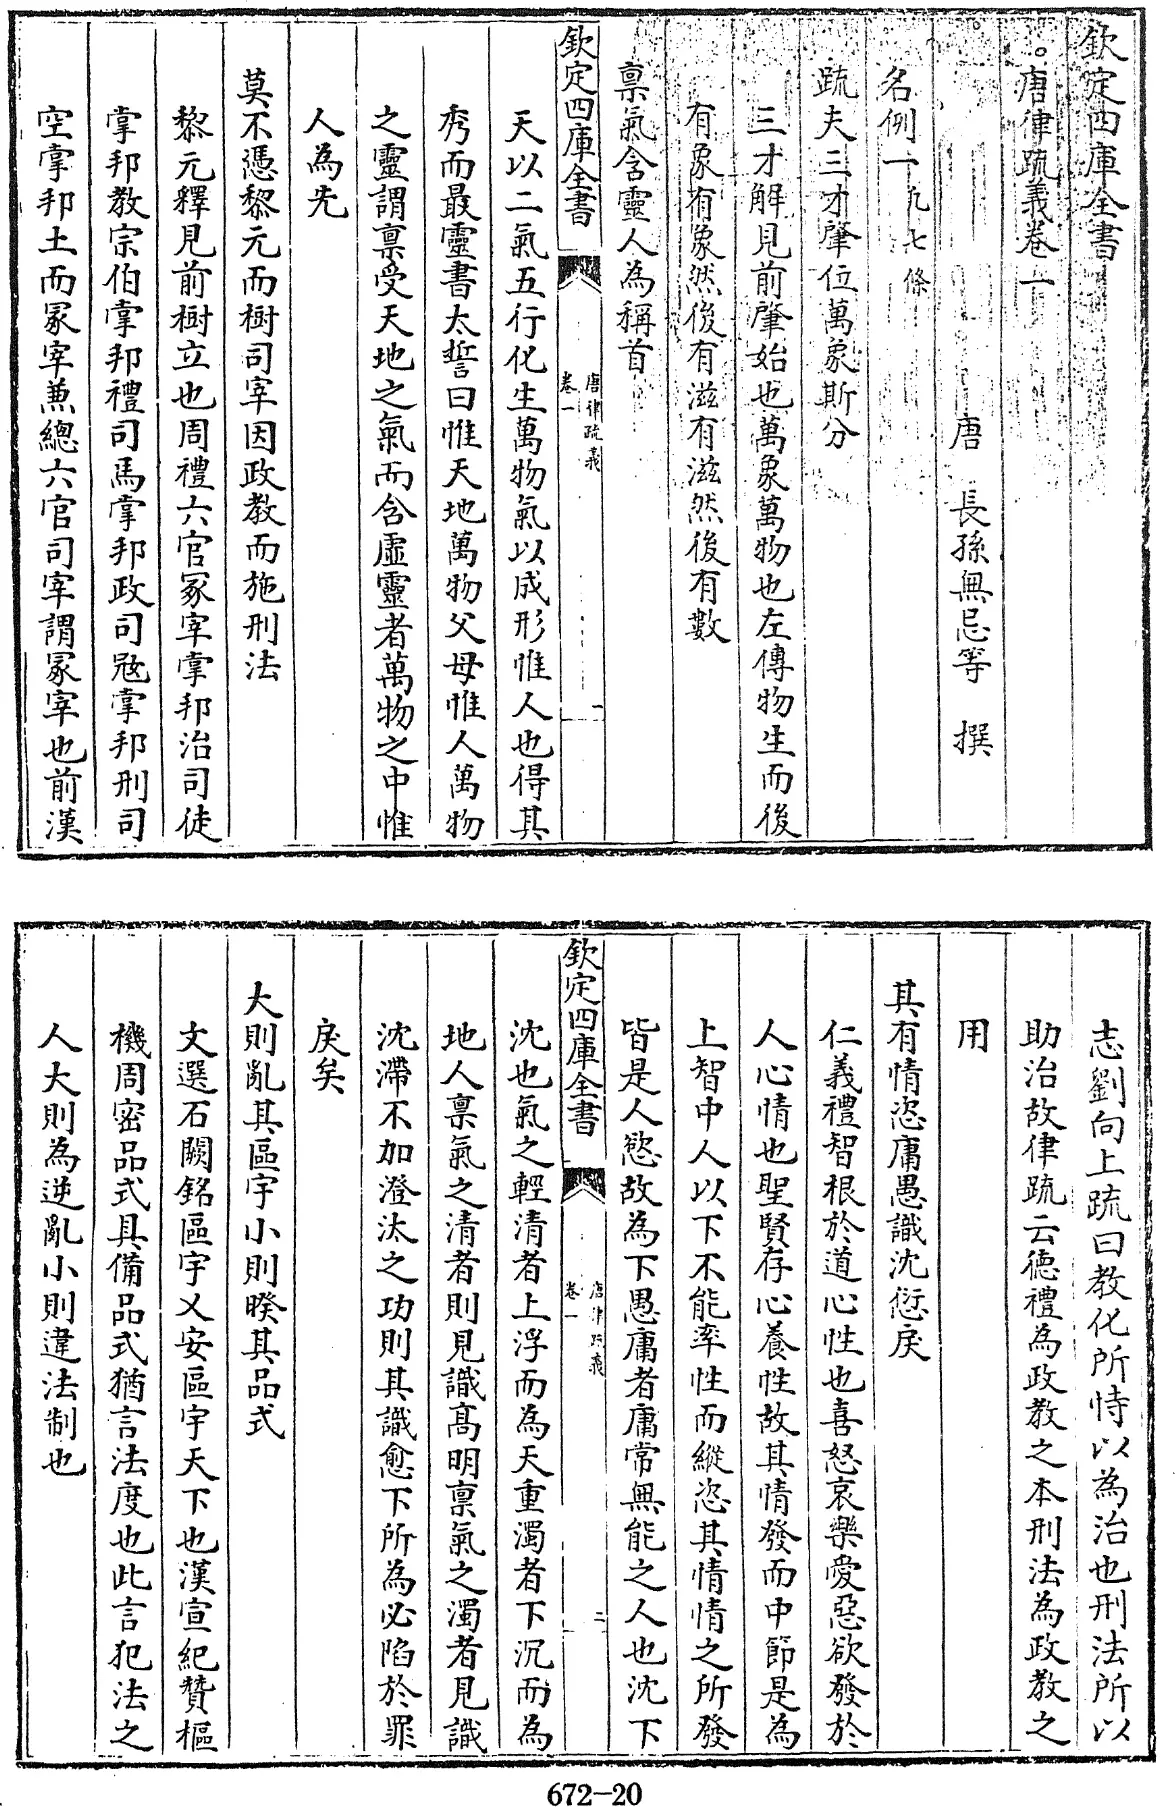 欽定四庫全書
唐律疏義卷一
唐 長孫無忌等 撰
名例一凡七條
疏夫三才肇位萬象斯分
三才解見前肇始也萬象萬物也左傳物生而後
有象有象然後有滋有滋然後有數
禀氣含靈人為稱首
欽定四庫全書
唐律疏義
卷一
一
天以二氣五行化生萬物氣以成形惟人也得其
秀而最靈書太誓曰惟天地萬物父母惟人萬物
之靈謂禀受天地之氣而含虛靈者萬物之中惟
人為先
莫不憑黎元而樹司宰因政教而施刑法
黎元釋見前樹立也周禮六官冢宰掌邦治司徒
掌邦教宗伯掌邦禮司馬掌邦政司宼掌邦刑司
空掌邦土而冢宰兼總六官司宰謂冢宰也前漢
志劉向上疏曰教化所恃以為治也刑法所以
助治故律疏云德禮為政教之本刑法為政教之
用
其有情恣庸愚識沈愆戾
仁義禮智根於道心性也喜怒哀樂愛惡欲發於
人心情也聖賢存心養性故其情發而中節是為
上智中人以下不能率性而縱恣其情情之所發
皆是人慾故為下愚庸者庸常無能之人也沈下
欽定四庫全書
唐律疏義
卷一
二
沈也氣之輕清者上浮而為天重濁者下沉而為
地人禀氣之清者則見識髙明禀氣之濁者見識
沈滯不加澄汰之功則其識愈下所為必陷於罪
戾矣
大則亂其區宇小則睽其品式
文選石闕銘區宇乂安區宇天下也漢宣紀贊樞
機周密品式具備品式猶言法度也此言犯法之
人大則為逆亂小則違法制也
672-20